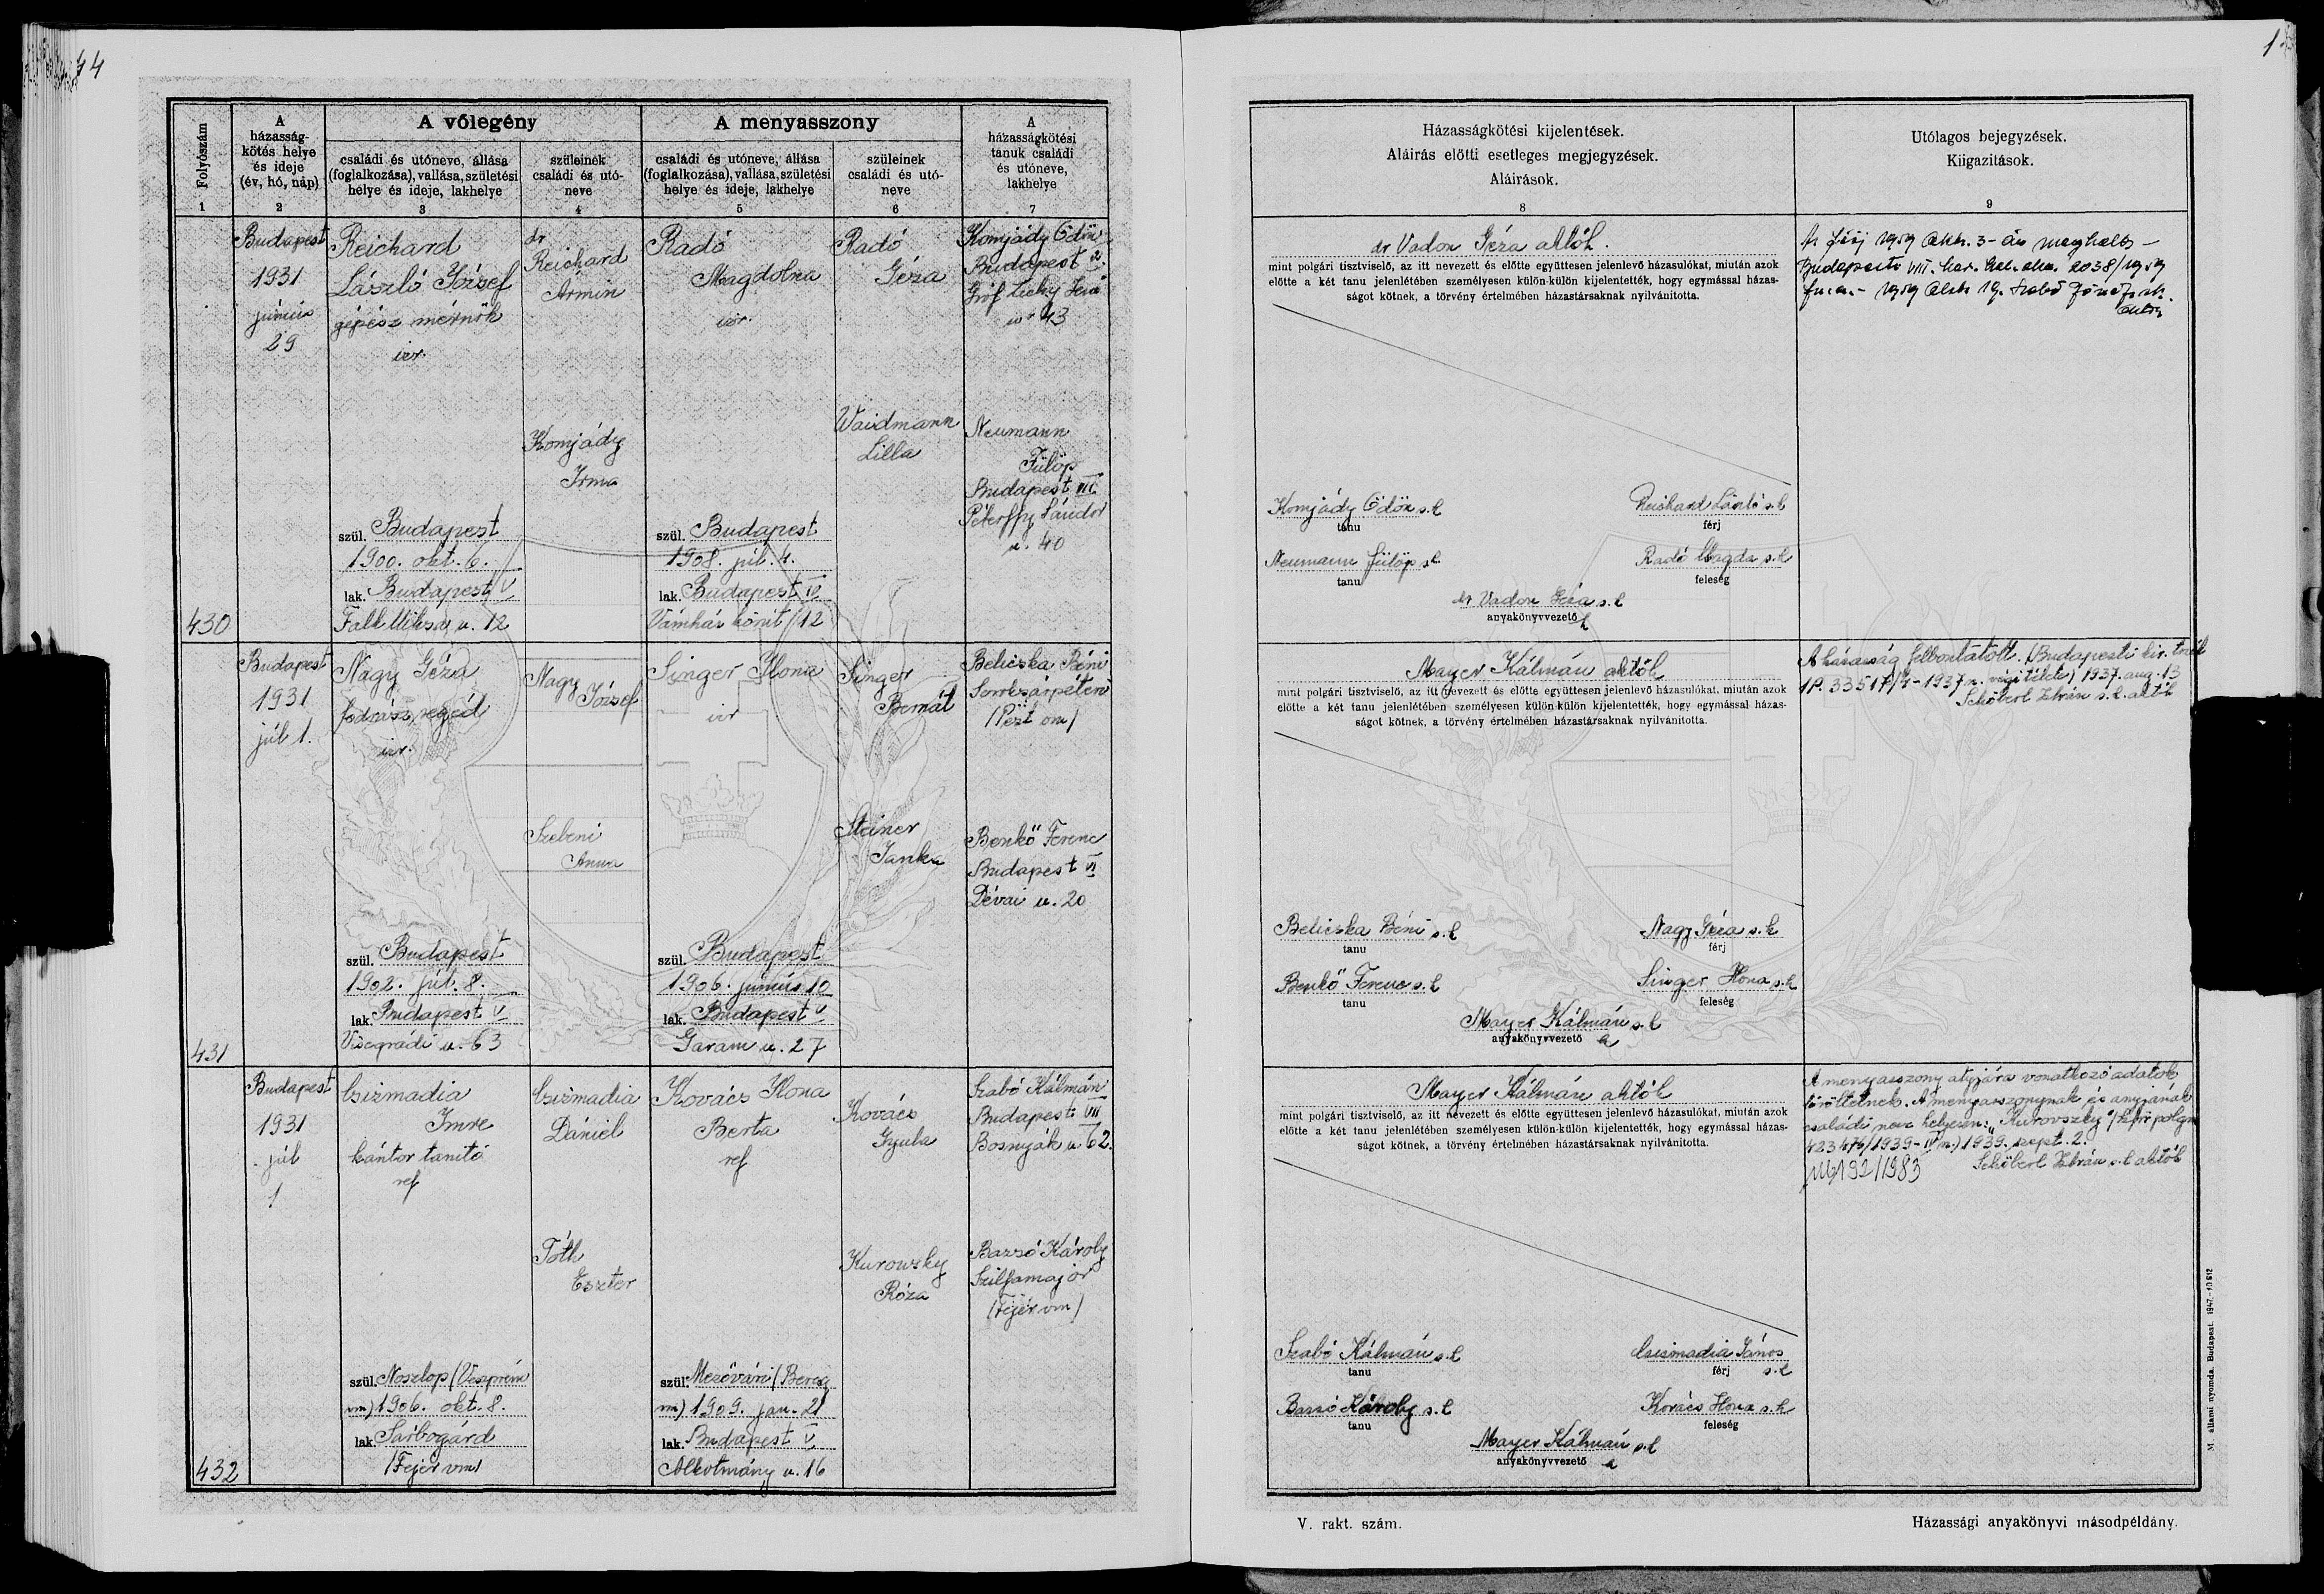 44
Folyószám
1
A
házasság-
kötés helye
és ideje
(év, hó, nap)
2
A vőlegény
családi és utóneve, állása
(foglalkozása), vallása, születési
helye és ideje, lakhelye
3
szüleinek
családi és utó-
neve
4
A menyasszony
családi és utóneve, állása
(foglalkozása), vallása, születési
helye és ideje, lakhelye
5
szüleinek
családi és utó-
neve
6
A
házasságkötési
tanuk családi
és utóneve,
lakhelye
7
430
Budapest
1931
június
29
Reichard
László József
gépész mérnök
izr.
szül. Budapest
1900. okt. 6.
lak. Budapest V
Falk Miksa u. 12
dr
Reichard
Ármin
Komjády
Irma
Radó
Magdolna
izr.
szül. Budapest
1908. júl. 4.
lak. Budapest IX
Vámház körút 12
Radó
Géza
Waidmann
Lilla
Komjády Ödön
Budapest V.
Gróf Zichy Jenő
u. 43
Neumann
Fülöp
Budapest VII.
Péterffy Sándor
u. 40
431
Budapest
1931
júl 1.
Nagy Géza
fodrász segéd
izr.
szül. Budapest
1902. júl. 8.
lak. Budapest V
Visegrádi u. 63
Nagy
József
Szebeni
Anna
Singer Ilona
izr
szül. Budapest
1906. június 10
lak. Budapest V
Garam u. 27
Singer
Bernát
Steiner
Janka
Beliczka Béni
Soroksárpéteri
(Pest vm)
Benkő Ferenc
Budapest VI
Dévai u. 20
432
Budapest
1931
júl
1
Csizmadia
Imre
kántor tanító
ref
szül. Noszlop (Veszprém
vm) 1906. okt. 8.
lak. Sárbogárd
(Fejér vm)
Csizmadia
Dániel
Tóth
Eszter
Kovács Ilona
Berta
ref
szül. Mezővári (Bereg
vm) 1909. jan. 21
lak. Budapest V.
Alkotmány u. 16
Kovács
Gyula
Kurowsky
Róza
Szabó Kálmán
Budapest VII
Bosnyák u 62.
Barsó Károly
Szilfamajor
(Fejér vm)
1
Házasságkötési kijelentések.
Aláirás előtti esetleges megjegyzések.
Aláirások.
8
Utólagos bejegyzések.
Kiigazitások.
9
dr Vadon Géza ahtóh.
mint polgári tisztviselő, az itt nevezett és előtte együttesen jelenlevő házasulókat, miután azok
előtte a két tanu jelenlétében személyesen külön-külön kijelentették, hogy egymással házas-
ságot kötnek, a törvény értelmében házastársaknak nyilvánitotta.
Komjády Ödön s.k
tanu
Reichard László s.k
férj
Neumann Fülöp s.k
tanu
Radó Magda s.k
feleség
dr Vadon Géza s.k
anyakönyvvezető h
A férj 1959 3-án meghalt
Budapest VIII. ker. 2038/1959
1959 19. Szabó
Mayer Kálmán ahtóh
mint polgári tisztviselő, az itt nevezett és előtte együttesen jelenlevő házasulókat, miután azok
előtte a két tanu jelenlétében személyesen külön-külön kijelentették, hogy egymással házas-
ságot kötnek, a törvény értelmében házastársaknak nyilvánitotta.
Beliczka Béni s.k
tanu
Nagy Géza s.k
férj
Benkő Ferenc s.k
tanu
Singer Ilona s.k
feleség
Mayer Kálmán s.k
anyakönyvvezető h
A házasság felbontatott. (Budapesti kir. tszék
1937 végitélete) 1937. aug. 13
Schöberl István s.k. ahtóh
Mayer Kálmán ahtóh
mint polgári tisztviselő, az itt nevezett és előtte együttesen jelenlevő házasulókat, miután azok
előtte a két tanu jelenlétében személyesen külön-külön kijelentették, hogy egymással házas-
ságot kötnek, a törvény értelmében házastársaknak nyilvánitotta.
Szabó Kálmán s.k
tanu
Csizmadia János
férj s.k
Barsó Károly s.k
tanu
Kovács Ilona s.k
feleség
Mayer Kálmán s.k
anyakönyvvezető h
A menyasszony atyjára vonatkozó adatok
töröltetnek. A menyasszonynak és anyjának
családi neve helyesen: "Kurovszky"
1939. szept. 2.
Schöberl István s.k ahtóh
192/1983
V. rakt. szám.
Házassági anyakönyvi másodpéldány.
M. állami nyomda. Budapest. 1947.